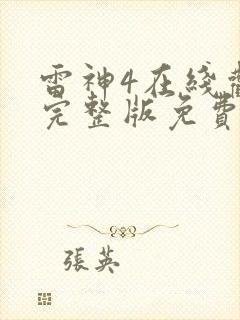 雷神4在线
完整版免費
張英